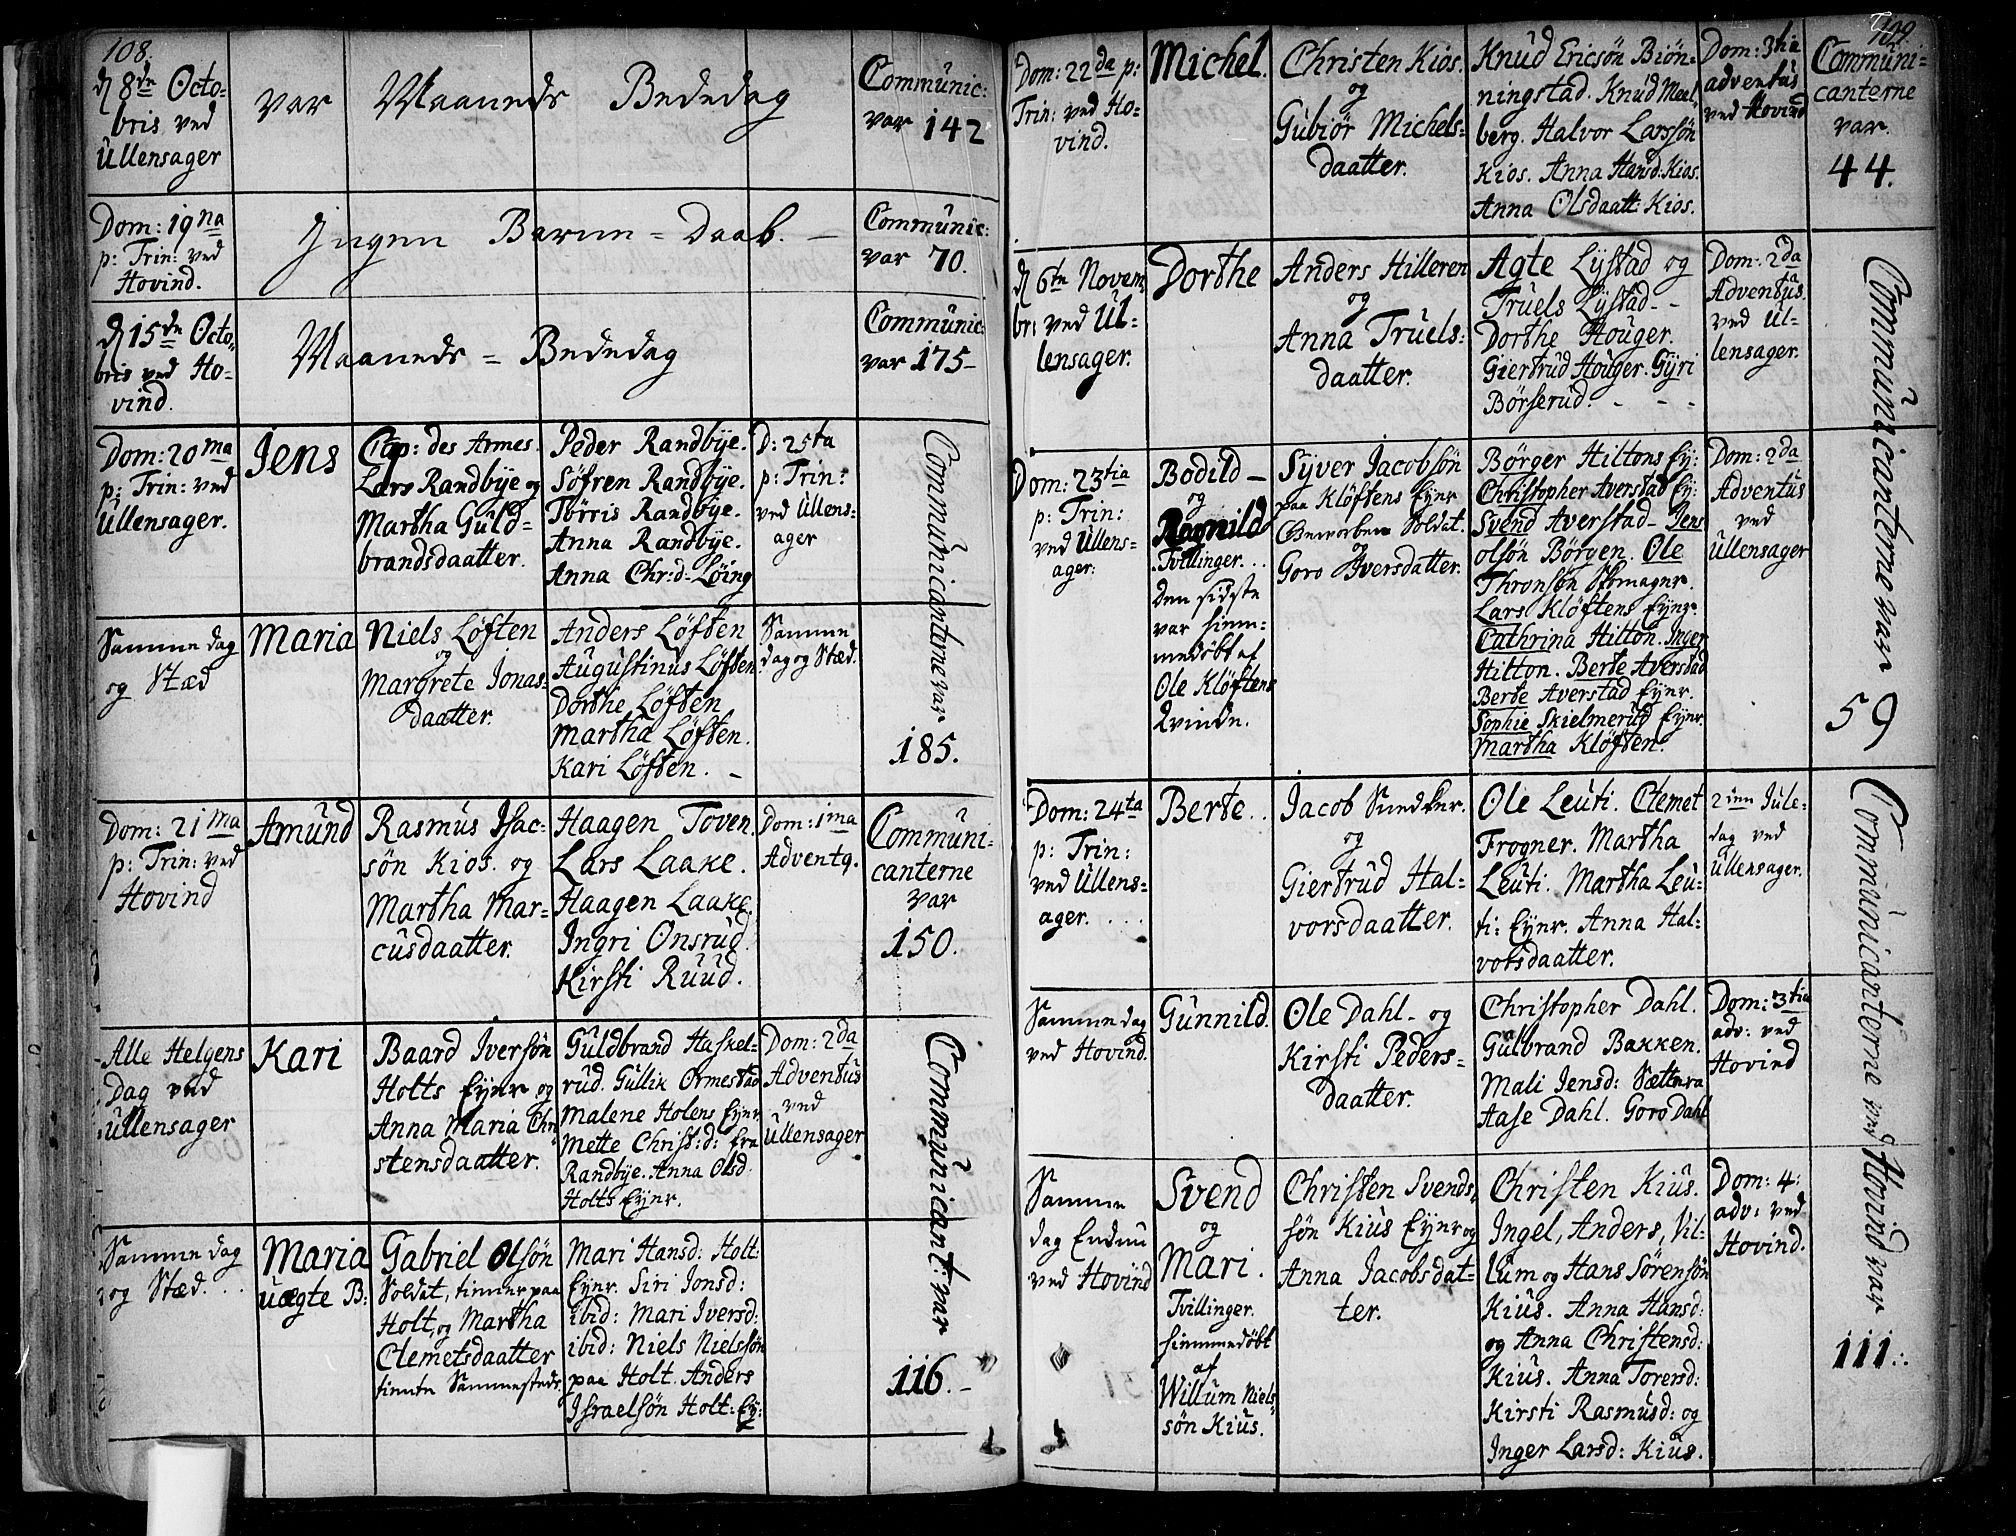 108.
d 8de Octo-
bris ved
Ullensager
var Maaneds Bededag
Communic:
var 142
Dom: 19na
p: Trin: ved
Hovind.
Ingen Barne-Daab. -
Communic:
var 70.
d 15de Octo-
bris ved Ho-
vind.
Maaneds-Bededag
Communic:
var 175-
Dom: 20ma
p: Trin: ved
Ullensager.
Jens
Cap: des Armes.
Lars Randbÿe og
Martha Guld-
brandsdaatter.
Peder Randbÿe.
Söfren Randbÿe.
Törris Randbÿe.
Anna Randbÿe.
Anna Chr:d- Löing
D: 25ta
p: Trin:
ved Ullens-
ager
Communicanterne var
185.
Samme dag
og Stæd
Maria
Niels Löften
og
Margrete Jonas-
daatter.
Anders Löften
Augustinus Löften
Dorthe Löften
Martha Löften.
Kari Löften. -
Samme
dag og Stæd.
Dom: 21ma
p: Trin: ved
Hovind
Amund
Rasmus Isac-
sön Kios. og
Martha Mar-
cusdaatter.
Haagen Toven.
Lars Laake.
Haagen Laake.
Ingri Onsrud.
Kirsti Ruud.
Dom: 1ma
Adventq.
Communi-
canterne
var
150.
Alle Helgens
Dag ved
Ullensager
Kari
Baard Iversön
Holts Eÿnr og
Anna Maria Chri
stensdaatter.
Guldbrand Haskel-
rud. Gullik Ormestad
Malene Holens Eÿnr
Mette Christ:d: fra
Randbÿe. Anna Olsd
Holts Eÿnr.
Dom: 2da
Adventus
ved
Ullensager
Communicant: var
116.-
Samme dag
og Stæd. . .
Maria
uægte B:
Gabriel Olsön
Soldat, tienner paa
Holt, og Martha
Clemetsdaatter
tiente Sammesteds.
Mari Hansd: Holt:
Eÿnr. Siri Jonsd:
ibid: Mari Iversd:
ibid: Niels Nielssön
paa Holt. Anders
Israelsön Holt: Eÿ:
109.
Dom: 22da p:
Trin: ved Ho-
vind.
Michel.
Christen Kios.
og
Gubiör Michels-
daatter.
Knud Ericsön Biön-
ningstad. Knud Mæl-
berg. Halvor Larssön
Kios. Anna Hansd: Kios.
Anna Olsdaatt: Kios.
Dom: 3tia
adventus
ved Hovind
Communi-
canterne
var.
44.
d 6te Novem
br: ved Ul-
lensager.
Dorthe
Anders Hilleren
og
Anna Truels-
daatter.
Agte Lÿstad og
Truels Lÿstad--
Dorthe Houger.
Giertrud Houger. Gÿri
Börserud. - - -
Dom: 2da
Adventus.
ved Ul-
lensager.
Communicanterne var
59
Dom: 23tia
p: Trin:
ved Ullens-
ager.
Bodild -
og
Ragnild
Tvillinger. . .
den sidste
var hiem-
medöbt af
Ole Klöftens
Qvinde.
Sÿver Jacobsön
paa Klöftens Eÿnr
Gevorben Soldat.
og
Goro Iversdatter.
Börger Hiltons Eÿ:
Christopher Averstad Eÿ:
Svend Averstad- Jens
olsön Börgen. Ole
Thronsön Skomager.
Lars Klöftens Eÿnr
Cathrina Hilton. Inger
Hilton. Berte Averstad
Berte Averstad Eÿnr.
Sophie Skielmerud Eÿnr
Martha Klöften.
Dom: 2da
Adventus
ved
Ullensager
Dom: 24ta
p: Trin:
ved Ullens-
ager. . . .
Berte. .
Jacob Smedker.
og
Giertrud Hal-
vorsdaatter.
Ole Leuti. Clemet
Frogner. Martha
Leuti. Martha Leu-
ti: Eÿnr. Anna Hal-
vorsdaatter.
2den Jule-
dag ved
Ullensager.
Communicanterne ved Hovind var
111.
Samme dag
ved Hovind.
Gunnild.
Ole Dahl- og
Kirsti Peders-
daatter.
Christopher Dahl.
Gulbrand Bakken.
Mali Jensd: Sættera
Aase Dahl. Goro Dahl
Dom: 3tia
adv: ved
Hovind
Samme
dag Endnu
ved Hovind
Svend
og
Mari.
Tvillinger.
hiemmedöbt
af
Willum Niels-
sön Kius.
Christen Svends-
sön Kius Eÿnr og
Anna Jacobsdat-
ter.
Christen Kius.
Ingel, Anders, Vil-
lum og Hans Sörensön
Kius. Anna Hansd:
og Anna Christensd:
Kius. Anna Torersd:
Kirsti Rasmusd: og
Inger Larsd: Kius.
Dom: 4:
adv: ved
Hovind.